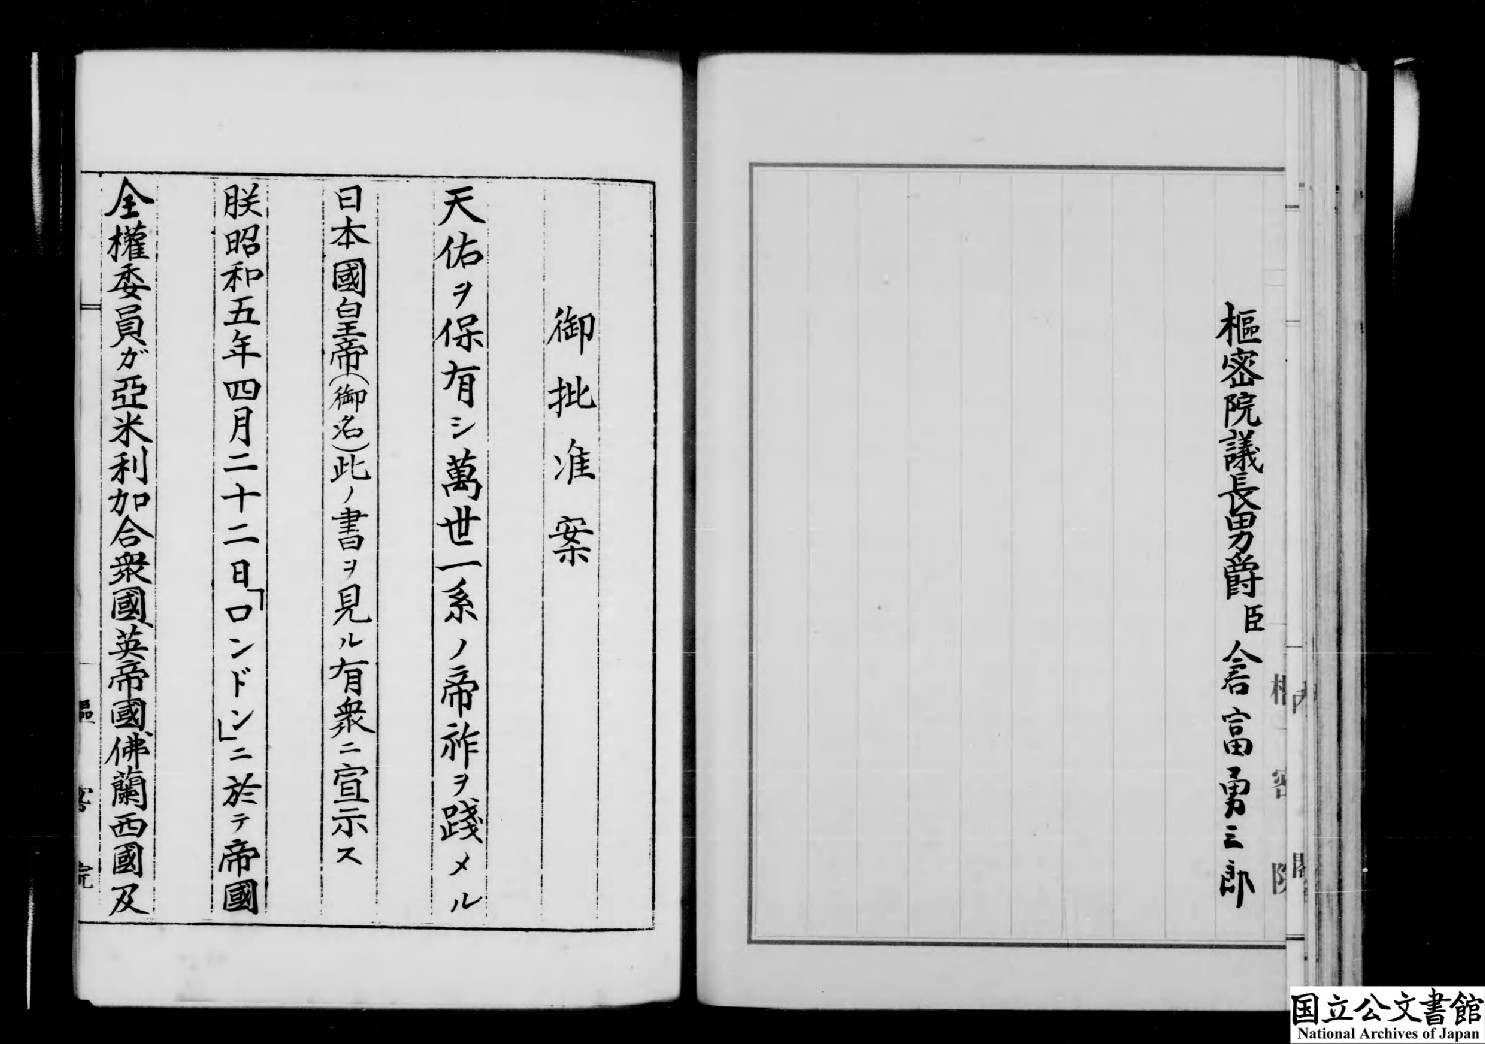 樞密院議長男爵臣倉富勇三郎
御批准案
天佑ヲ保有シ萬世一系ノ帝祚ヲ踐メル
日本國皇帝(御名)此ノ書ヲ見ル有衆ニ宣示ス
朕昭和五年四月二十二日「ロンドン」ニ於テ帝國
全權委員ガ亞米利加合衆國、英帝國、佛蘭西國及
樞密院
国立公文書館
National Archives of Japan